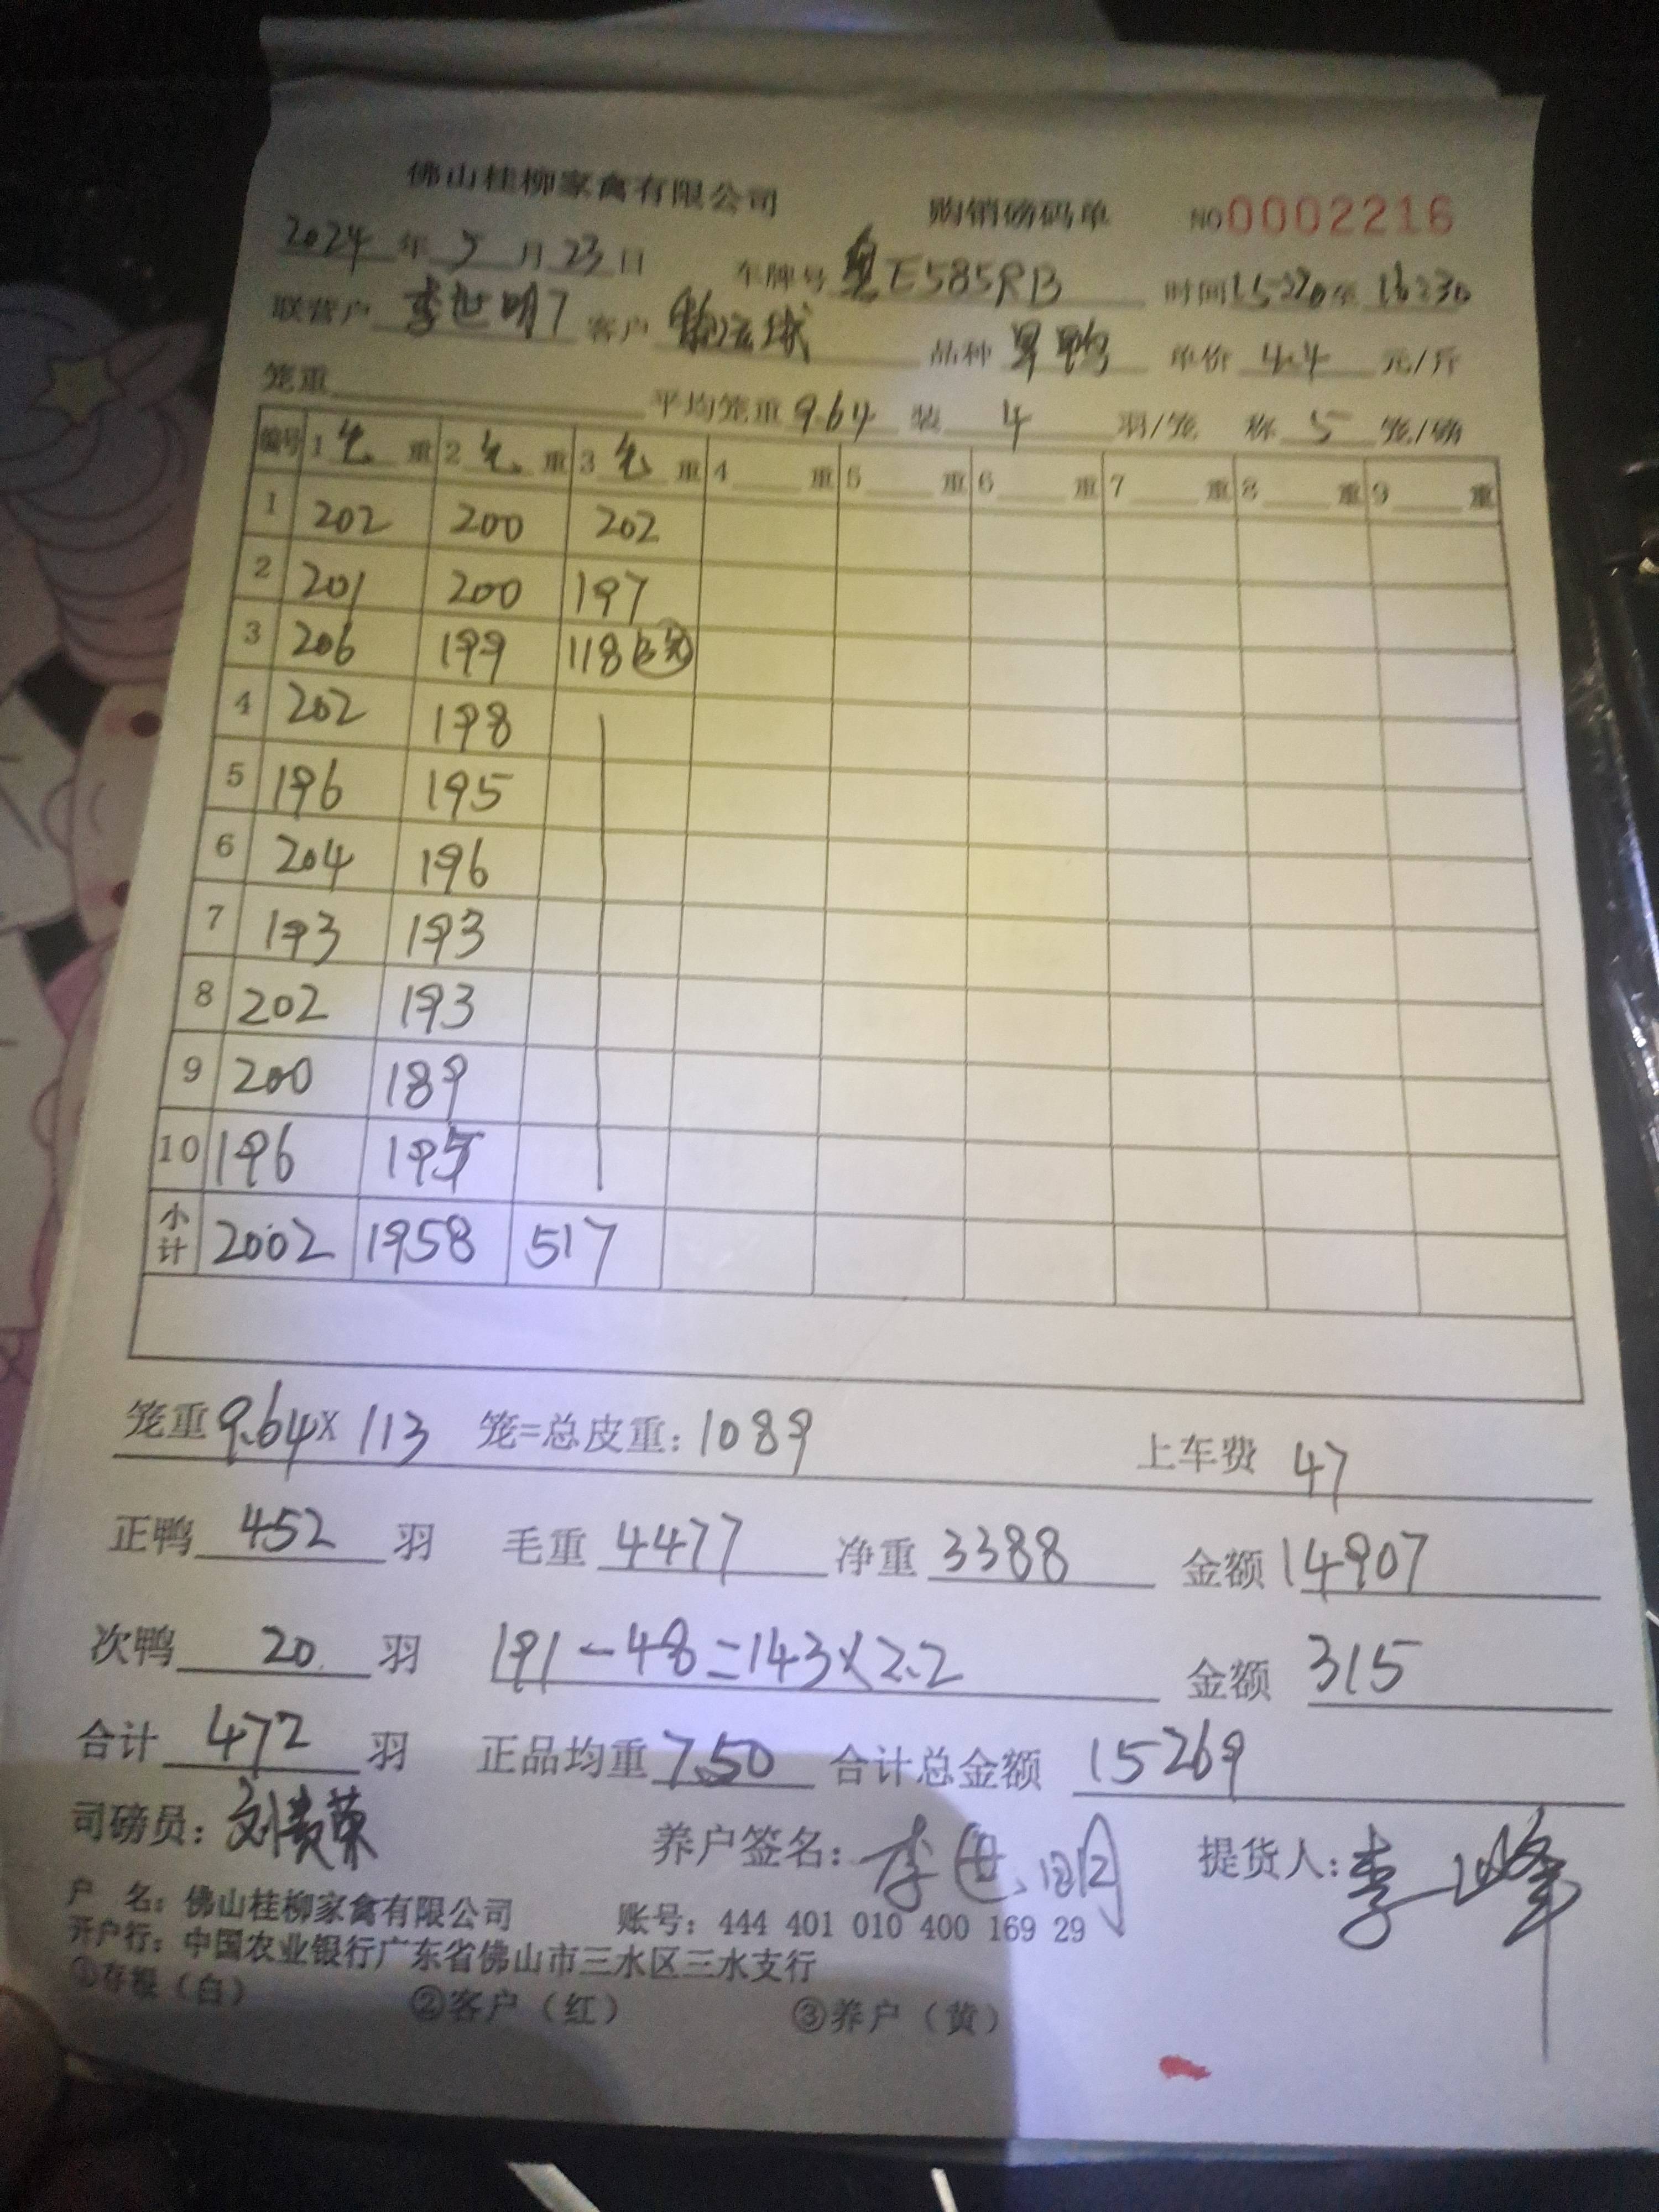 佛山桂柳家禽有限公司 购销磅码单 NO 0002216
2024年5月23日 车牌号 粤E585RB 时间15:20至16:30
联营户 李世明7 客户 品种 旱鸭 单价 4.4 元/斤
笼重 平均笼重 9.64 装 4 羽/笼 称 5 笼/磅
编号 1 毛 重 2 毛 重 3 毛 重 4 重 5 重 6 重 7 重 8 重 9 重
1 202 200 202
2 201 200 197
3 206 199 118 (3笼)
4 202 198
5 196 195
6 204 196
7 193 193
8 202 193
9 200 189
10 196 195
小计 2002 1958 517
笼重 9.64 X 113 笼=总皮重: 1089 上车费 47
正鸭 452 羽 毛重 4477 净重 3388 金额 14907
次鸭 20 羽 191-48=143×2.2 金额 315
合计 472 羽 正品均重 7.50 合计总金额 15269
司磅员: 刘贵荣 养户签名: 李世明 提货人: 李峰
户 名: 佛山桂柳家禽有限公司 账号: 444 401 010 400 169 29
开户行: 中国农业银行广东省佛山市三水区三水支行
①存根（白） ②客户（红） ③养户（黄）